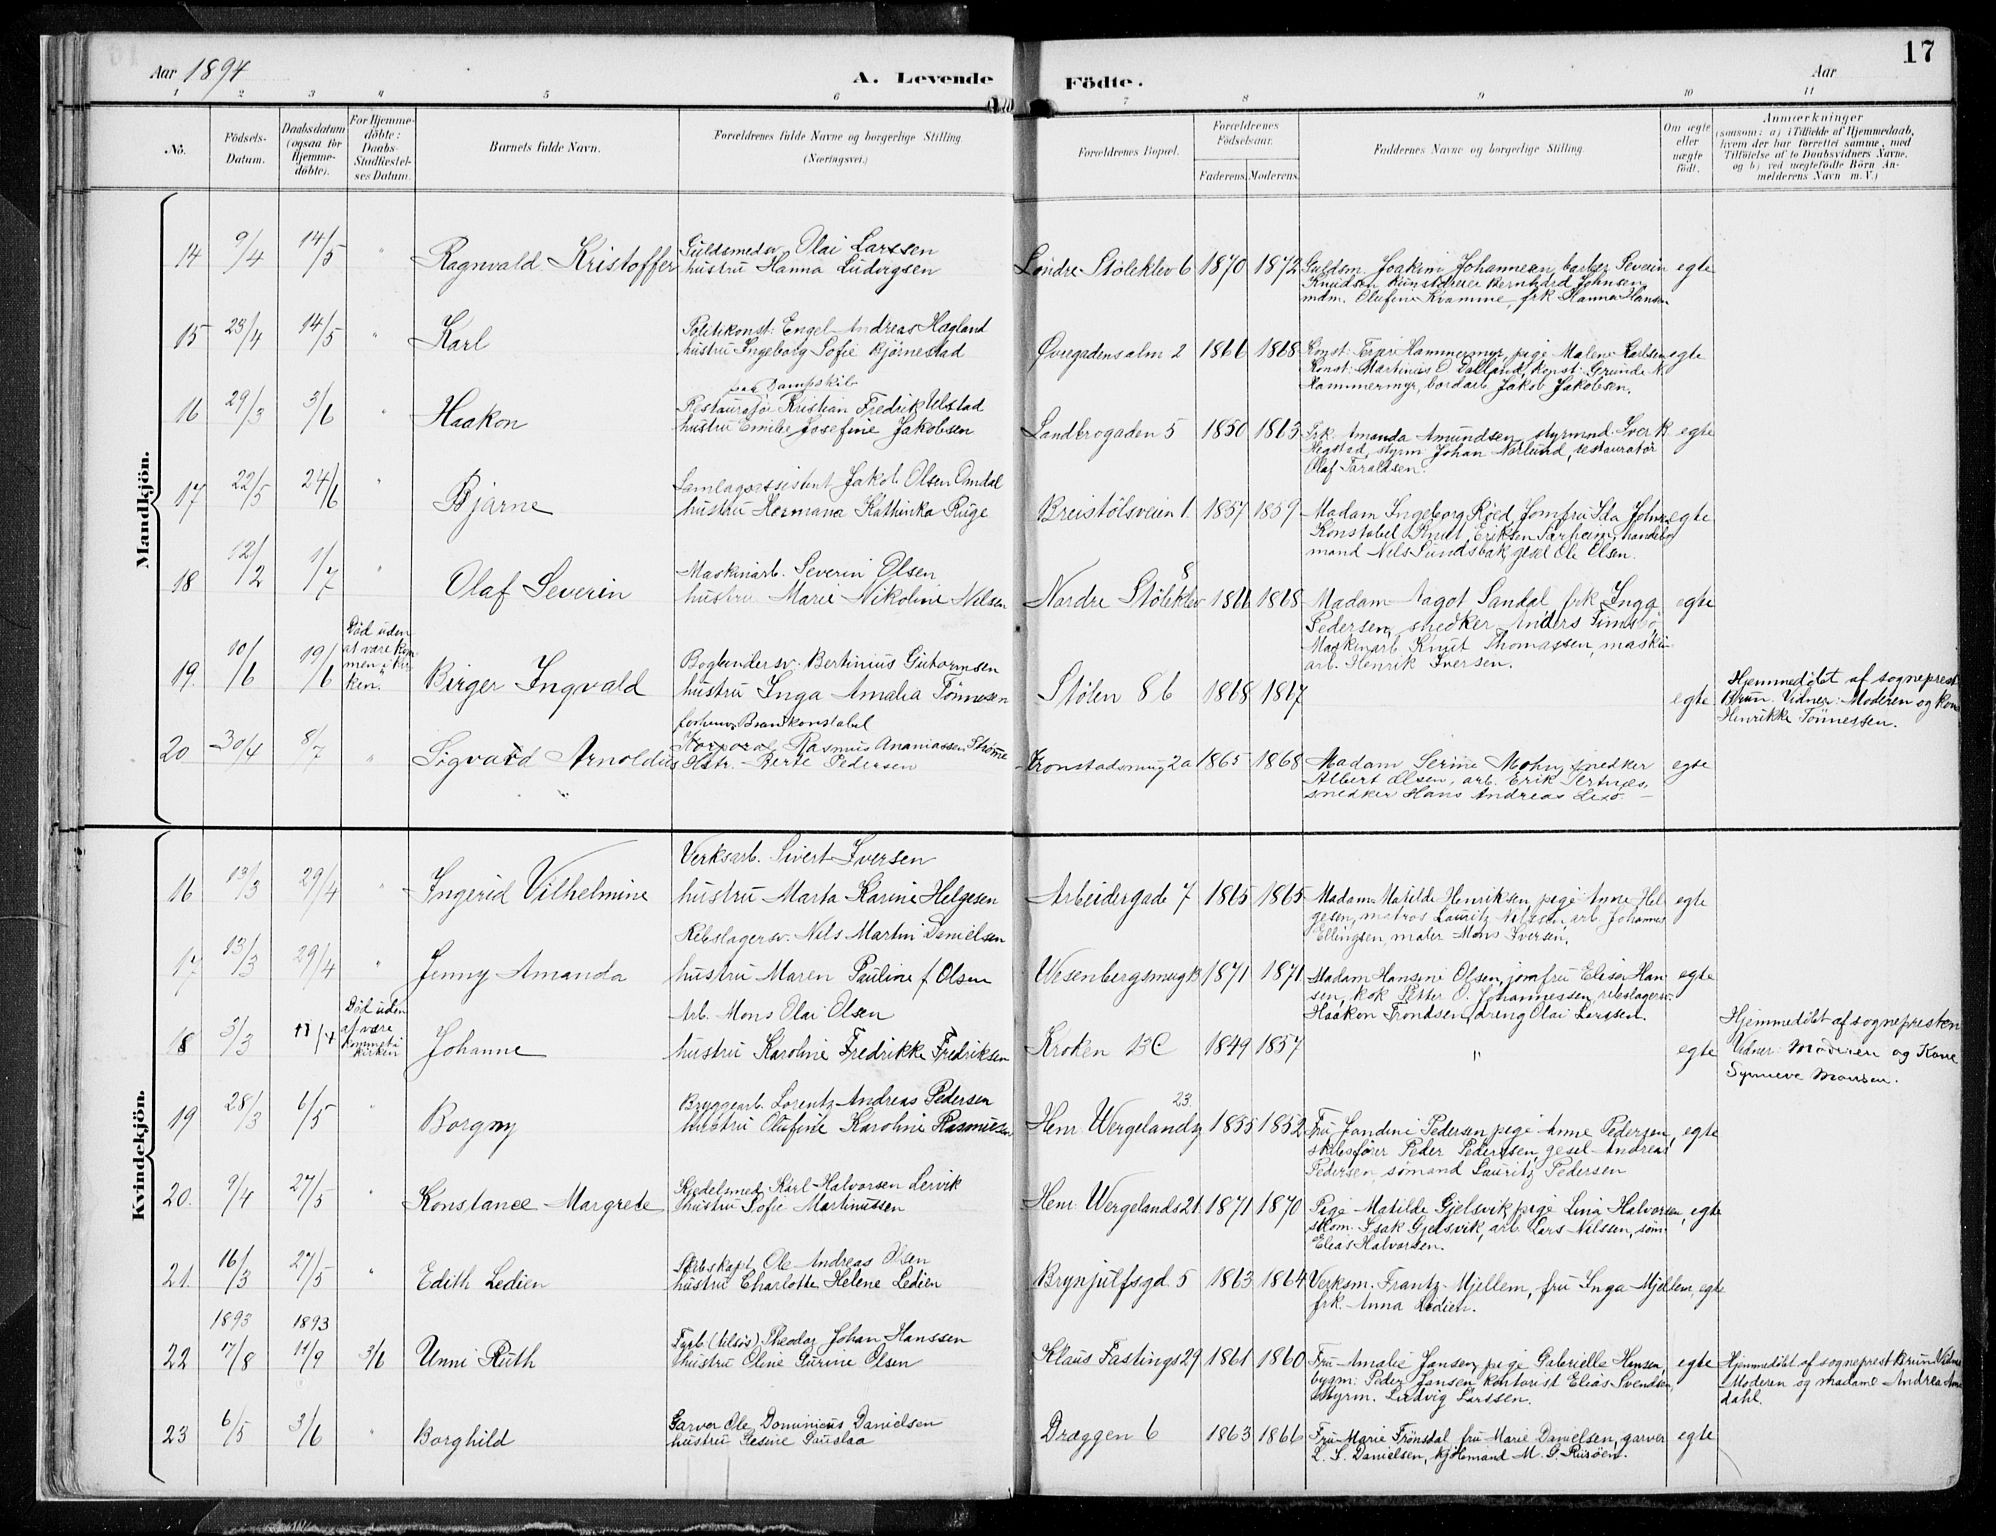 Aar 1894
A. Levende
Födte.
Aar
17
1 2 3 4 5 6 7 8 9 10 11
No.
Födsels-
Datum.
Daabsdatum
(ogsaa for
Hjemme-
döbte).
For Hjemme-
döbte:
Daabs-
Stadfæstel-
ses Datum.
Barnets fulde Navn.
Forældrenes fulde Navne og borgerlige Stilling
(Næringsvei.)
Forældrenes Bopæl.
Forældrenes
Födselsaar.
Faderens. Moderens.
Faddernes Navne og borgerlige Stilling.
Om ægte
eller
uægte
födt.
Anmærkninger
(saasom: a) i Tilfælde af Hjemmedaab,
hvem der har forrettet samme, med
Tilföielse af to Daabsvidners Navne,
og b) ved uægtefödte Börn An-
melderens Navn m. V.)
Mandkjön.
14 9/4 14/5 " Ragnvald Kristoffer
Guldsmedsv. Olai Larssen
hustru Hanna Ludvigsen
Søndre Støleklev 6 1870 1872
Guldsm. Joakim Johannesen, barber Severin
Knudsen, kunstdreier Bernhard Johnsen,
mdm. Olufine Kvamme, frk Hanna Hansen
egte
15 23/4 14/5 " Karl
Politikonst: Engel Andreas Hagland
hustru Ingeborg Sofie Bjørnestad
Øvregadensalm 2 1866 1868
Konst: Terjer Hammersmyr, pige Malene Karlsen
Konst: Martinus O Dalland, konst: Grunde N.
Hammermyr, bordarb. Jakob Jakobsen.
egte
16 29/3 3/6 " Haakon
paa Dampskib
Restauratør Kristian Fredrik Ulstad
hustru Emilie Josefine Jakobsen
Sandbrogaden 5 1850 1863
Frk. Amanda Amundsen, styrmnd. Sver R
Hegstad, styrm Johan Norlund, restauratør
Olaf Taraldsen.
egte
17 22/5 24/6 " Bjarne
Samlagsassistent Jakob Olsen Omdal
hustru Hermana Kathinka Ruge
Breistølsveien 1 1857 1859
Madam Ingeborg Røed, Jomfru Ida Johns.
Konstabel Knut Eriksen Sørheim, handels
mand Nels Sundsbak gsel Ole Olsen.
egte
18 12/2 1/7 " Olaf Severin
Maskinarb. Severin Olsen
hustru Marie Nikoline Nilsen
Nordre Støleklev 8 1866 1868
Madam Aagot Sandal, frk Inga
Pedersen, snedker Anders Timsbo,
Maskinarb. Knut Thomassen, maskin
arb. Henrik Iversen.
egte
19. 10/6 19/6
Død uden
at være kom
men i kir
ken.
Birger Ingvald
Bogbindersv. Bertinius Gutormsen
hustru Inga Amalia Tönnesen
Stølen 8 b 1868 1867
egte
Hjemmedöbt af sogneprest
Brun. Vidner: Moderen og kone
Henrikke Tönnessen.
20 30/4 8/7 " Sigvard Arnoldius
forhenv. Brandkonstabel
Korporal Rasmus Ananiassen Strømme
Hstr. Berte Pedersen
Kronstadsmug 2a 1865 1868
Madam Serine Mohn, snedker
Albert Olsen, arb. Erik Tertnæs,
snedker Hans Andreas Lexö
egte
Kvindekjön.
16 13/3 29/4 " Ingerid Vilhelmine
Verksarb. Sivert Iversen
hustru Marta Karine Helgesen
Arbeidergade 7 1865 1865
Madam Matilde Henriksen, pige Anne Hel
gesen, matros Lauritz Nilsen, arb. Johannes
Ellingsen, maler Mons Iversen.
egte
17 13/3 29/4 " Jenny Amanda
Rebslagersv. Nils Martin Danielsen
hustru Maren Pauline f Olsen
Wesenbergsmug 13 1871 1871
Madam Hansine Olsen, jomfru Elisa Han
sen, kok Petter O. Johannessen, rebslagersv.
Haakon Trondsen, dreng Olai Larssen.
egte
18 5/3 11/4
Død uden
at være
kommet i
kirken
Johanne
Arb. Mons Olai Olsen
hustru Karoline Fredrikke Fredriksen
Kroken 13C 1849 1857
"
egte
Hjemmedöbt af sognepresten
Vidner: Moderen og Kone
Synneve Monsen.
19 28/3 6/5 " Borgny
Bryggearb. Lorentz Andreas Pedersen
hustru Olufine Karoline Rasmusen
Henr. Wergelandsg 23. 1855 1852
Fru Jandine Pedersen pige Anne Pedersen,
skibsfører Peder Pedersen, gesel Andreas
Pedersen, sømand Lauritz Pedersen
egte
20. 9/4 27/5 " Konstance Margrete
Kjedelsmed Karl Halvorsen Lervik
hustru Sofie Martinussen
Henr. Wergelands 21. 1871 1870
Pige Matilde Gjelsvik, pige Lina Halvorsen,
skom. Isak Gjelsvik, arb. Lars Nilsen, søm
Elias Halvorsen.
egte
21. 16/3 27/5 " Edith Ledien
Skibskapt. Ole Andreas Olsen
hustru Charlotte Helene Ledien
Brynjulfsgd. 5 1863 1864
Verksm. Frantz Mjellem, fru Inga Mjellem,
frk. Anna Ledien.
egte
1893 1893
22 17/8 11/9 3/6 Unni Ruth
Fyrb. (tilsös) Theodor Johan Hanssen
hustru Oline Gurine Olsen
Klaus Fastings 29 1861 1860
Fru Amalie Jansen, pige Gabrielle Hansen
bygm: Peder Jansen kontorist Elias Svendsen,
styrm. Ludvig Larssen.
egte
Hjemmedöbt af sogneprest Brun Vidne
Moderen og madame Andrea Am
dahl.
23 6/5 3/6 " Borghild
Garver Ole Dominicus Danielsen
hustru Gesine Gauslaa
Dræggen 6 1863 1866
Fru Marie Frönsdal, fru Marie Danielsen, garver
L. S. Danielsen, kjøbmand M. G. Risöen.
egte